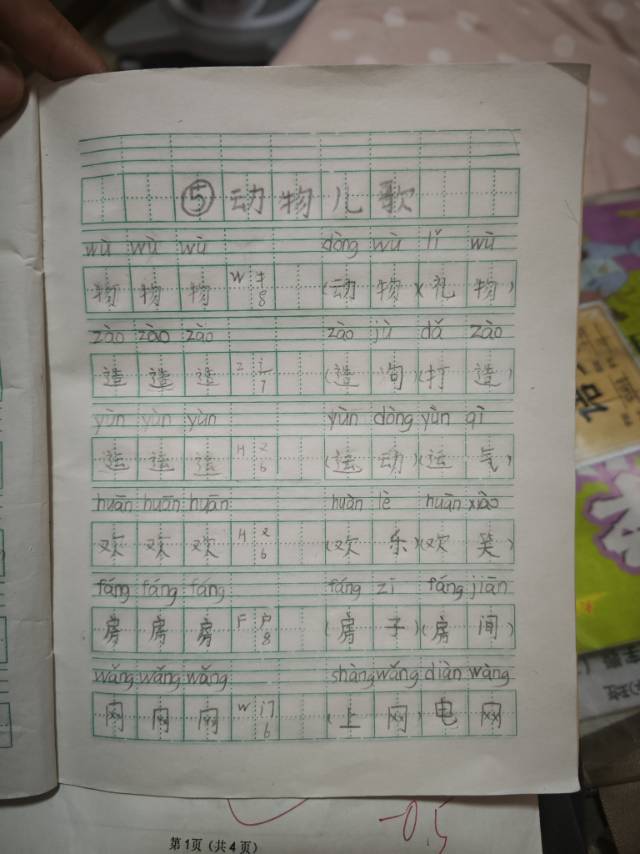 ⑤动物儿歌
wù wù wù dòng wù lǐ wù
物 物 物 W 牛 8 (动 物)(礼 物)
zào zào zào zào jù dǎ zào
造 造 造 Z 辶 7 (造 句)(打 造)
yùn yùn yùn yùn dòng yùn qì
运 运 运 (运 动)(运 气)
huān huān huān huān lè huān xiào
欢 欢 欢 H 又 6 (欢 乐)(欢 笑)
fáng fáng fáng fáng zi fáng jiān
房 房 房 F 户 8 (房 子)(房 间)
wǎng wǎng wǎng shàng wǎng diàn wàng
网 网 网 W 冂 6 (上 网) 电 网
第1页(共4页)